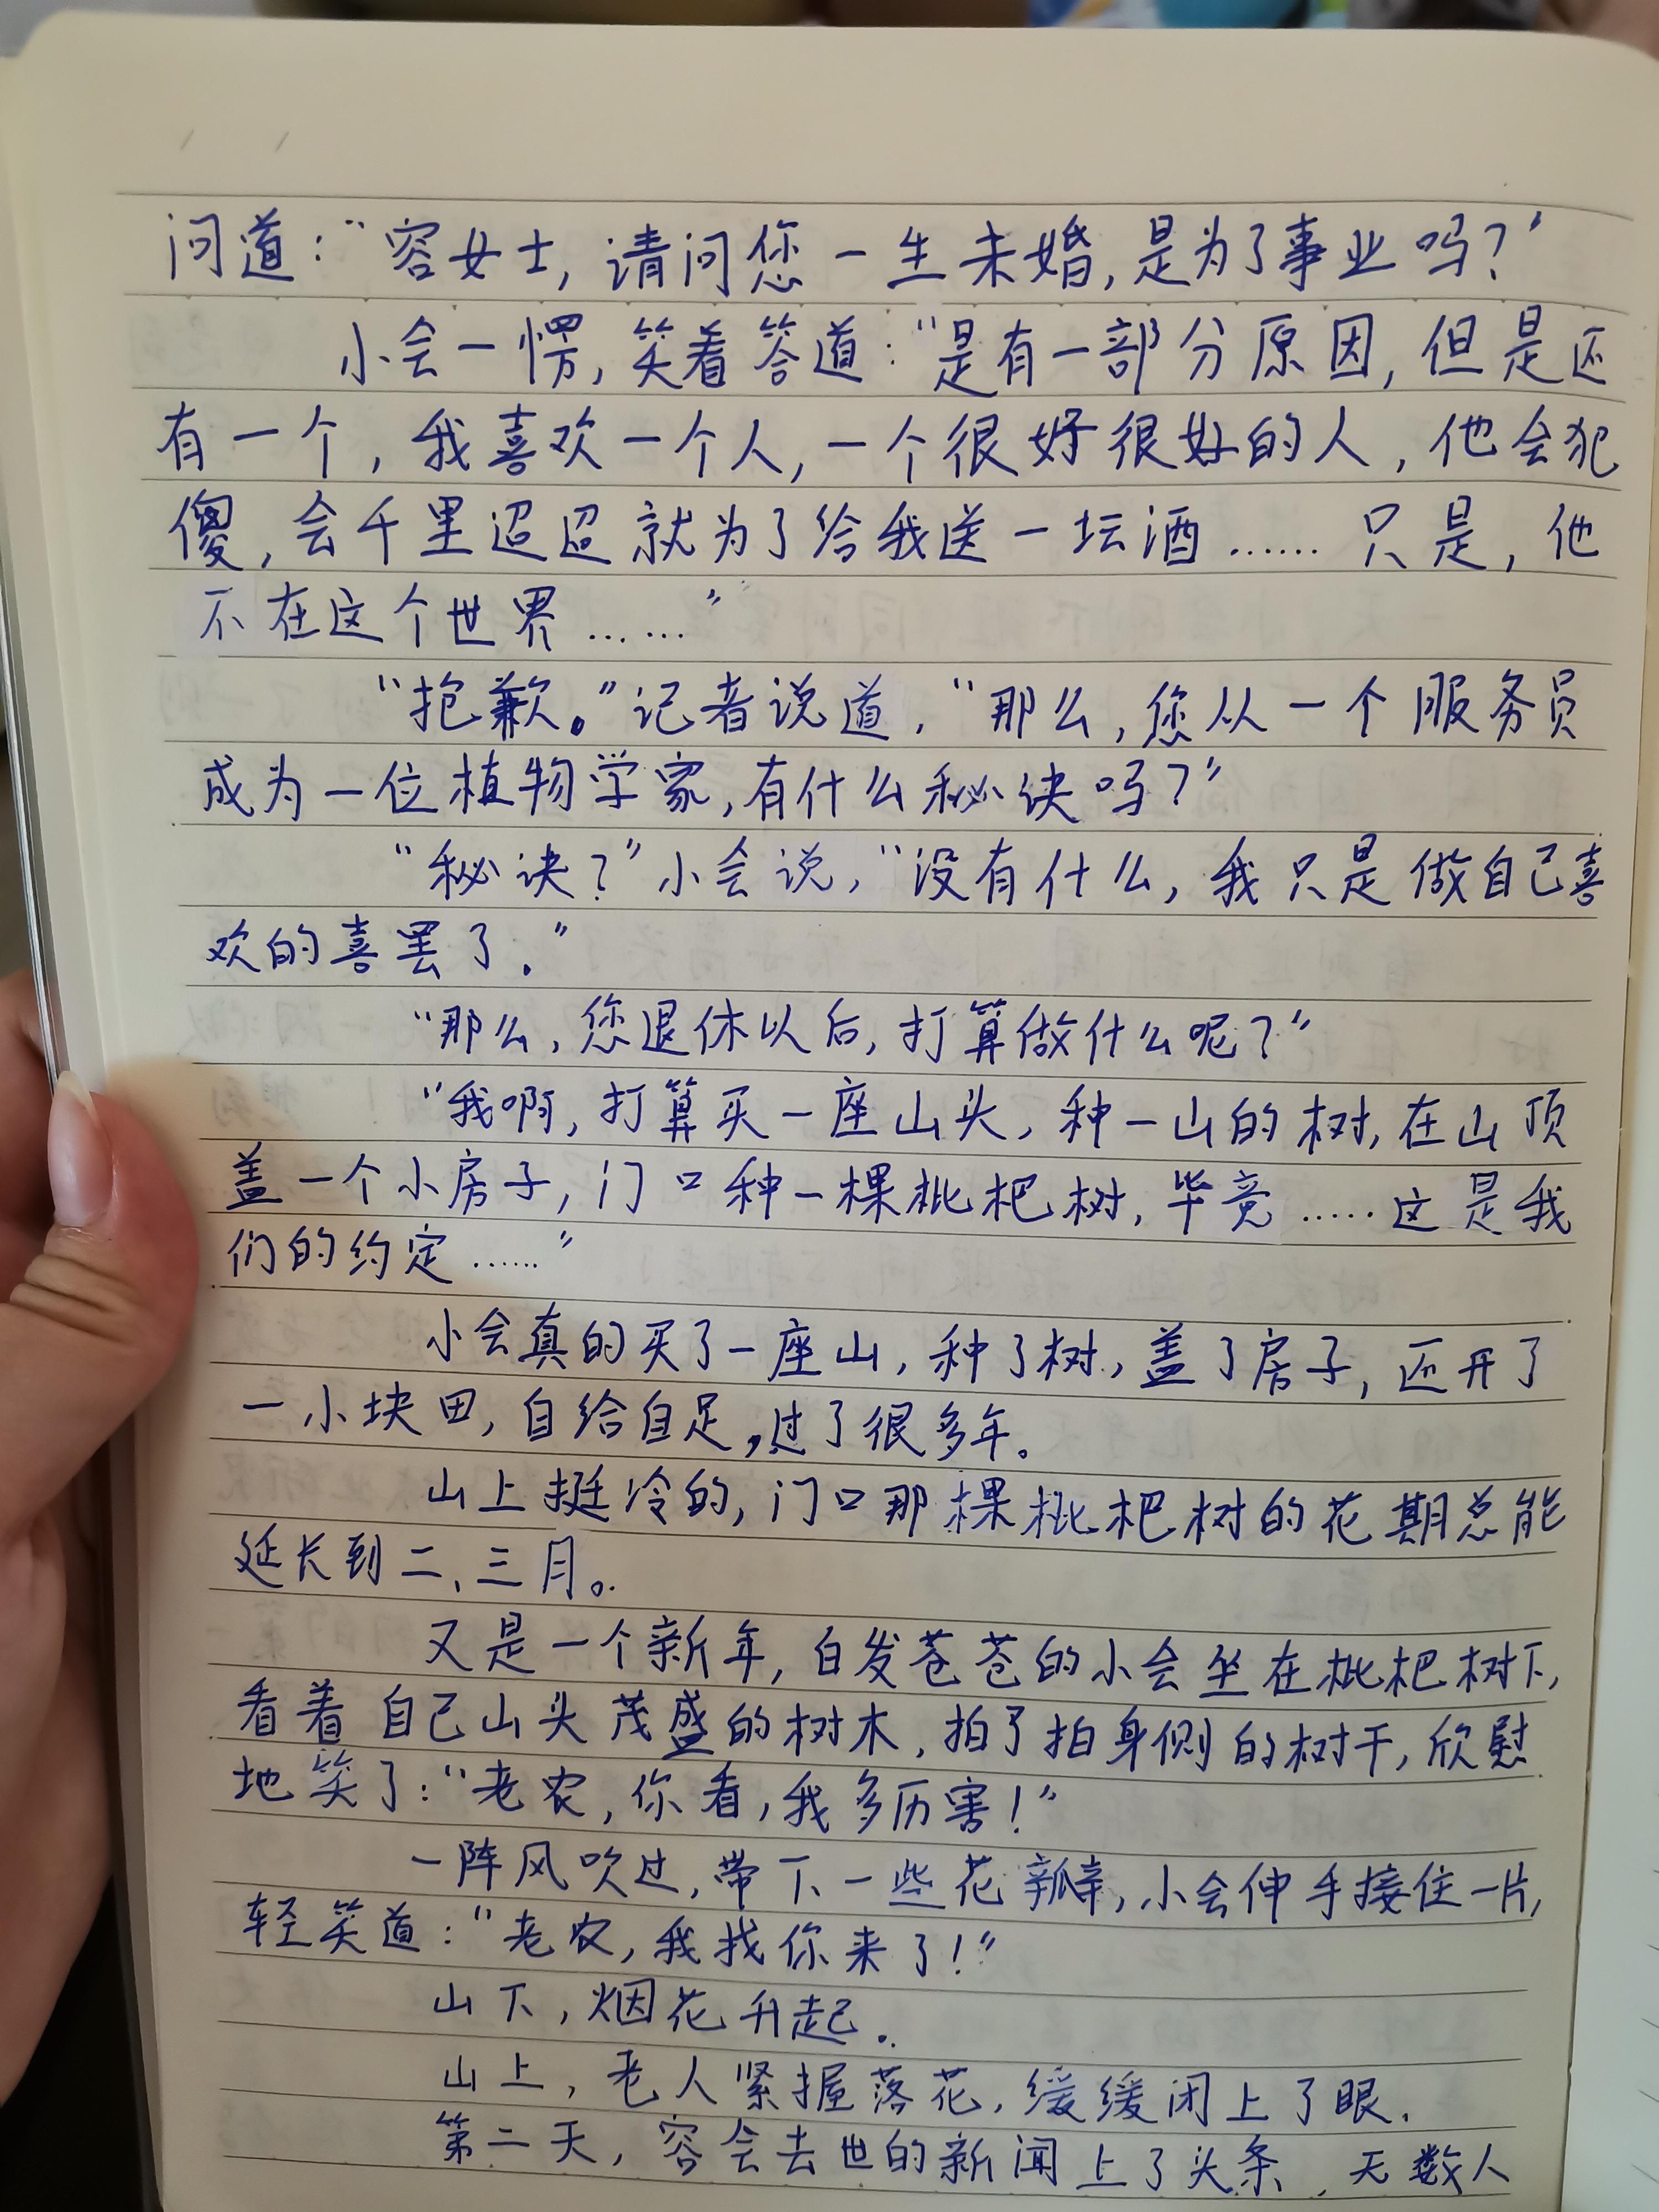 问道：“容女士，请问您一生未婚，是为了事业吗？”
小会一愣，笑着答道：“是有一部分原因，但是还
有一个，我喜欢一个人，一个很好很好的人，他会犯
傻，会千里迢迢就为了给我送一坛酒……只是，他
不在这个世界……”
“抱歉。”记者说道，“那么，您从一个服务员
成为一位植物学家，有什么秘诀吗？”
“秘诀？”小会说，“没有什么，我只是做自己喜
欢的喜罢了。”
“那么，您退休以后，打算做什么呢？”
“我啊，打算买一座山头，种一山的树，在山顶
盖一个小房子，门口种一棵枇杷树，毕竟……这是我
们的约定……”
小会真的买了一座山，种了树，盖了房子，还开了
一小块田，自给自足，过了很多年。
山上挺冷的，门口那棵枇杷树的花期总能
延长到二、三月。
又是一个新年，白发苍苍的小会坐在枇杷树下，
看着自己山头茂盛的树木，拍了拍身侧的树干，欣慰
地笑了：“老农，你看，我多厉害！”
一阵风吹过，带下一些花瓣，小会伸手接住一片，
轻笑道：“老农，我找你来了！”
山下，烟花升起。
山上，老人紧握落花，缓缓闭上了眼。
第二天，容会去世的新闻上了头条，无数人